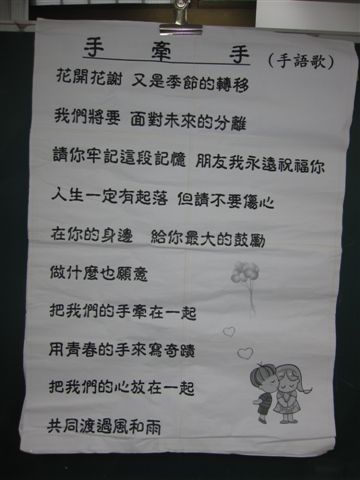 手 牽 手 (手語歌)
花開花謝 又是季節的轉移
我們將要 面對未來的分離
請你牢記這段記憶 朋友我永遠祝福你
人生一定有起落 但請不要傷心
在你的身邊 給你最大的鼓勵
做什麼也願意
把我們的手牽在一起
用青春的手來寫奇蹟
把我們的心放在一起
共同渡過風和雨